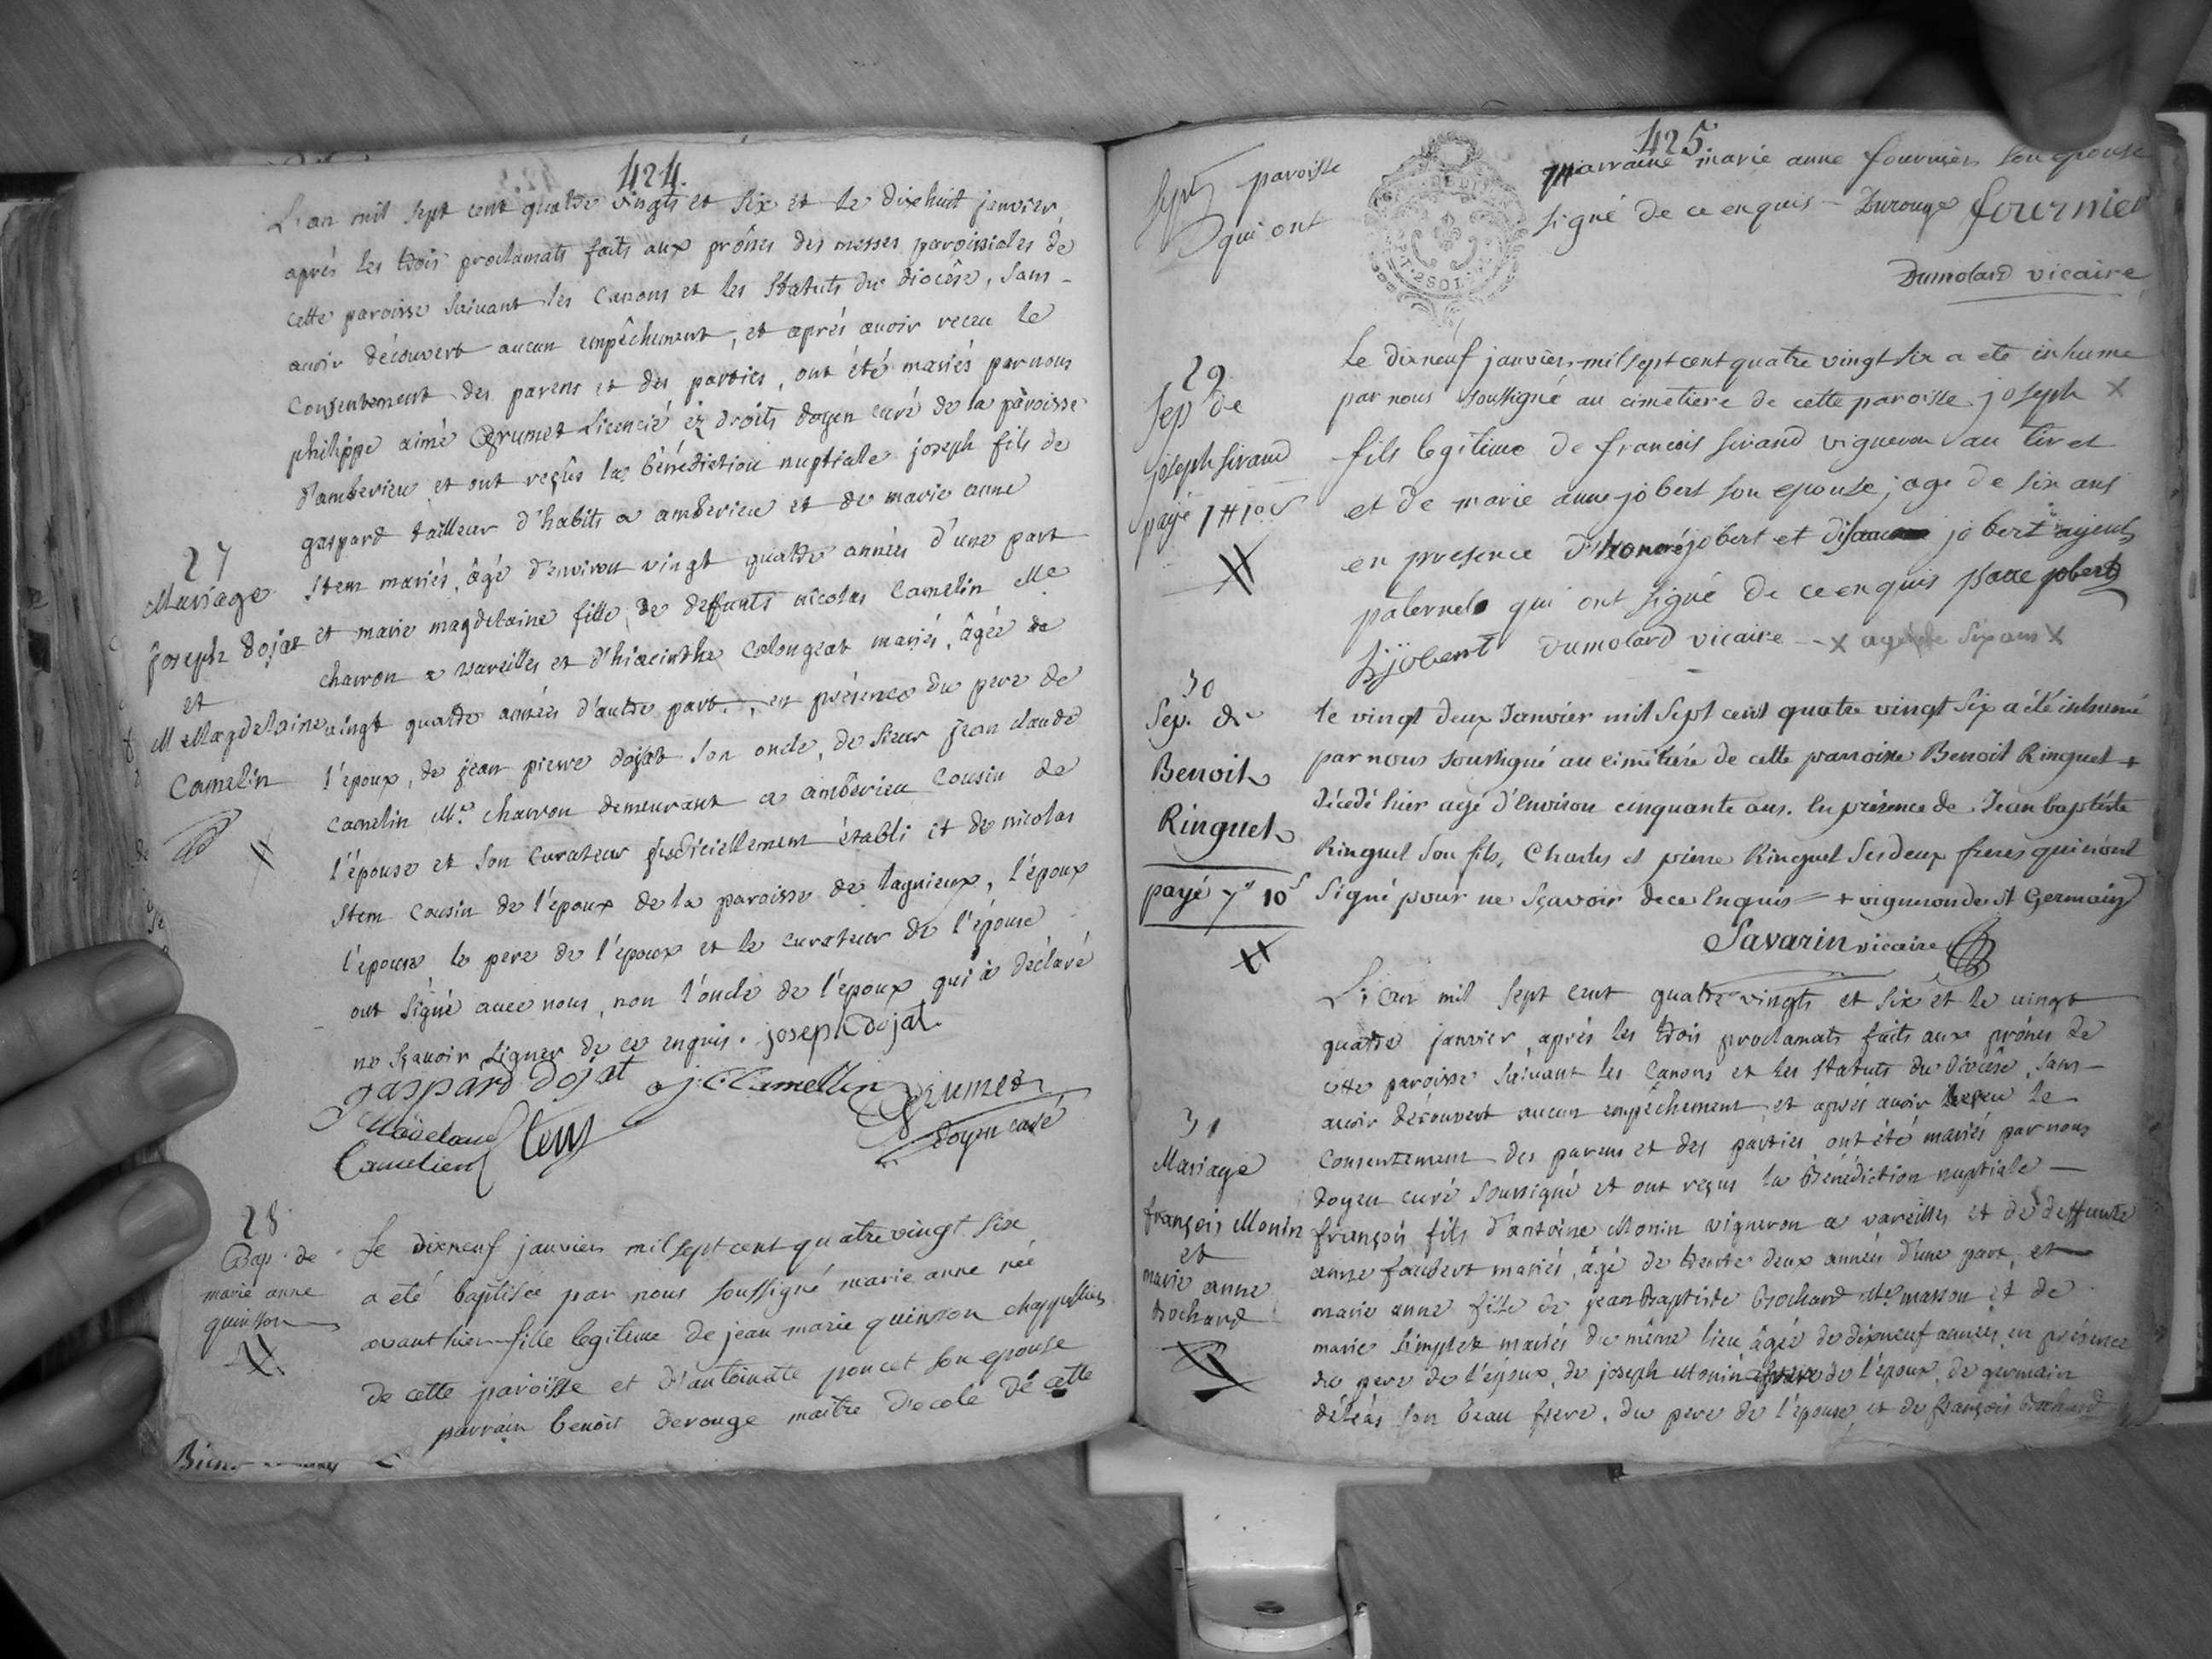 424.
L'an mil sept cent quatre vingts et six et le dixhuit janvier
après les trois proclamats faits aux prônes des messes paroissiales de
cette paroisse suivant les canons et les statuts du diocèse, sans
avoir découvert aucun empêchement, et après avoir receu le
consentement des parens et des parties, ont été mariés par nous
philippe aimé Grumet Licencié ez droits doyen curé de la paroisse
d'amberieu et ont reçus la bénédiction nuptiale joseph fils de
gaspard tailleur d'habits a amberieu et de marie anne
27
Mariage
joseph dojat
et
M Magdelaine
Camelin
Item mariés, âgé d'environ vingt quatre années d'une part
et marie magdelaine fille de deffunts nicolas Camelin Me
charron a vareilles et d'hiacinthe Colongeat mariés, âgée de
vingt quatre années d'autre part, en présence du pere de
l'époux, de jean pierre dojat son oncle, de sieur jean claude
Camelin Me charron demeurant a amberieu cousin de
l'épouse et son curateur judiciellement établi et de nicolas
Item cousin de l'époux de la paroisse de lagnieux, l'époux
l'épouse le pere de l'époux et le curateur de l'épouse
ont signé avec nous, non l'oncle de l'époux qui a déclaré
ne sçavoir signer de ce enquis. joseph dojat
gaspard dojat j. C. Camellin Grumet
doyen curé
28
Bap. de
marie anne
quinson
Le dixneuf janvier mil sept cent quatre vingt six
a été baptisée par nous soussigné marie anne née
avant hier fille legitime de jean marie quinson
de cette paroisse et d'antoinette poncet son epouse
parrain benoit derouge maitre d'ecole de cette
425.
paroisse
qui ont
marraine marie anne fournier son epouse
signé de ce enquis Durouge fournier
Dumolard vicaire
29
Sep de
joseph sirand
payé 1 # 10 s
Le dixneuf janvier mil sept cent quatre vingt six a eté inhumé
par nous soussigné au cimetiere de cette paroisse joseph X
fils legitime de francois sirand vigneron au tiret
et de marie anne jobert son epouse, age de six ans
en presence d'honoré jobert et jobert ayeuls
paternels qui ont signé de ce enquis jobert
jobert Dumolard vicaire X agé de six ans X
30
Sep. de
Benoit
Ringuet
payé 7# 10s
le vingt deux Janvier mil sept cent quatre vingt six a été inhumé
par nous soussigné au cimetiére de cette parroisse Benoit Ringuet +
décédé hier agé d'environ cinquante ans. En présence de Jean baptiste
Ringuet son fils, Charles et pierre Ringuet ses deux freres qui n'ont
signé pour ne sçavoir de ce enquis + vigneron de st Germain
Savarin vicaire
31
Mariage
françois Monin
et
marie anne
brochard
L'an mil sept cent quatre vingts et six et le vingt
quatre janvier, après les trois proclamats faits aux prônes de
cette paroisse suivant les Canons et les statuts du diocèse, sans
avoir découvert aucun empêchement et après avoir receu le
consentement des parens et des parties, ont été mariés par nous
doyen curé soussigné et ont reçus la bénédiction nuptiale
françois fils d'antoine Monin vigneron a vareilles et de deffunte
anne faubert mariés, âgé de trente deux années d'une part, et
marie anne fille de jean baptiste brochard Me masson et de
marie simplex mariés du même lieu âgée de dixneuf années, en présence
du pere de l'époux, de joseph Monin frere de l'époux, de germain
son beau frere, du pere de l'épouse, et de françois brochard